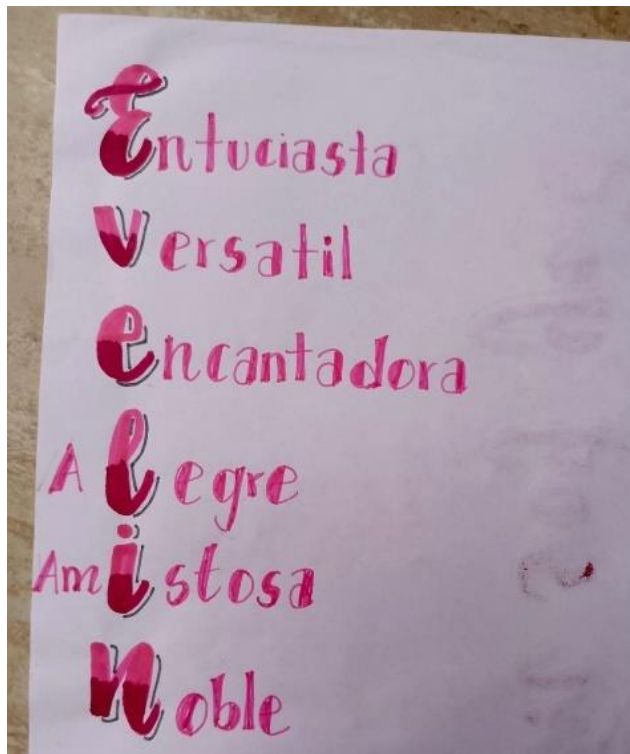 Entuciasta
Versatil
encantadora
Alegre
Amistosa
Noble